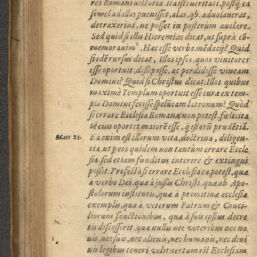 res Romani uictoria. Itaq; si ueritati, postq; ea
semel ad illos peruenisset, alas, q; aduolauerat,
detraxerint, ne posset in posterum auolare.
Sed quid si illis Hieremias dicat, ut suprà cō-
memorauim? Hæc esse verba mēdacij? Quid
si idē rursus dicat, Illos ipsos, quos uinitores
esse oportuit, dissipasse, ac perdidisse vineam
Domini? Quid si Christus dicat, Illos quibus
maximè Templum oportuit esse curæ ex tem-
plo Domini fecisse speluncam latronum? Quòd
si errare Ecclesia Romana non potest, fœlicita
tē eius oportet maiorē esse, q̃ istorū prudētiā.
Matt 21.
Ea enim est illorum vita, doctrina, diligen-
tia, ut per eos quidem non tantum errare Eccle
sia, sed etiam funditus interire & extingui
possit. Profectò si errare Ecclesia ea potest, quæ
a verbo Dei, quæ à iussis Christi, quæ ab Apo-
stolorum institutis, quæ à primitiuæ ecclesiæ
exemplis, quæ a veterum Patrum & Conci-
liorum sanctionibus, quæ à suis ipsius decre-
tis discesserit, quæ nullis nec veteribus nec no-
uis, nec suis, nec alienis, nec humanis, nec diui
nis legibus teneri velit: certum est Ecclesiam